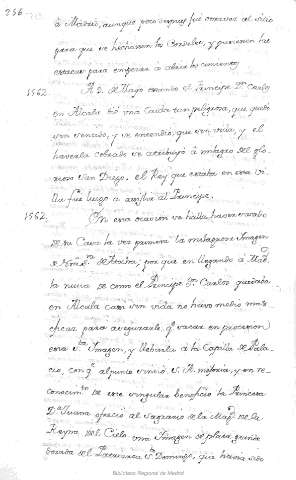 256
à Madrid, aunque poco despues fue otra vez al sitio
para que se hiciessen los Cordeles, y pusieron las
estacas para empezar à abrir los cimientos
1562. A 9 de Mayo estando el Principe Dn. Carlos
en Alcalà diò una Caida tan peligrosa, que quedò
sin sentido, y se entendiò que sin vida, y el
haverla cobrado se atribuyò à milagro del glo-
rioso San Diego, el Rey que estaba en esta vi-
lla fue luego à asistir al Principe.
1562. En esta ocasion se halla haver salido
de su Casa la vez primera la milagrosa Imagen
de Nra. Sra. de Atocha, por que en llegando à Mad.
la nueva de como el Principe Dn. Carlos quedaba
en Alcalà casi sin vida no huvo medio mas
eficaz para asegurarle, q. sacar en procesion
esta Sta. Imagen, y llebarla à la Capilla de Pala-
cio, con q. al punto sintiò S. A. mejoria, y en re-
conocimto. de este singular beneficio la Princesa
Da. Juana ofreciò al Sagrario de la Magd. de la
Reyna del Cielo una Imagen de plata grande
del Patriarca Sto. Domingo, que havia sido
Biblioteca Regional de Madrid